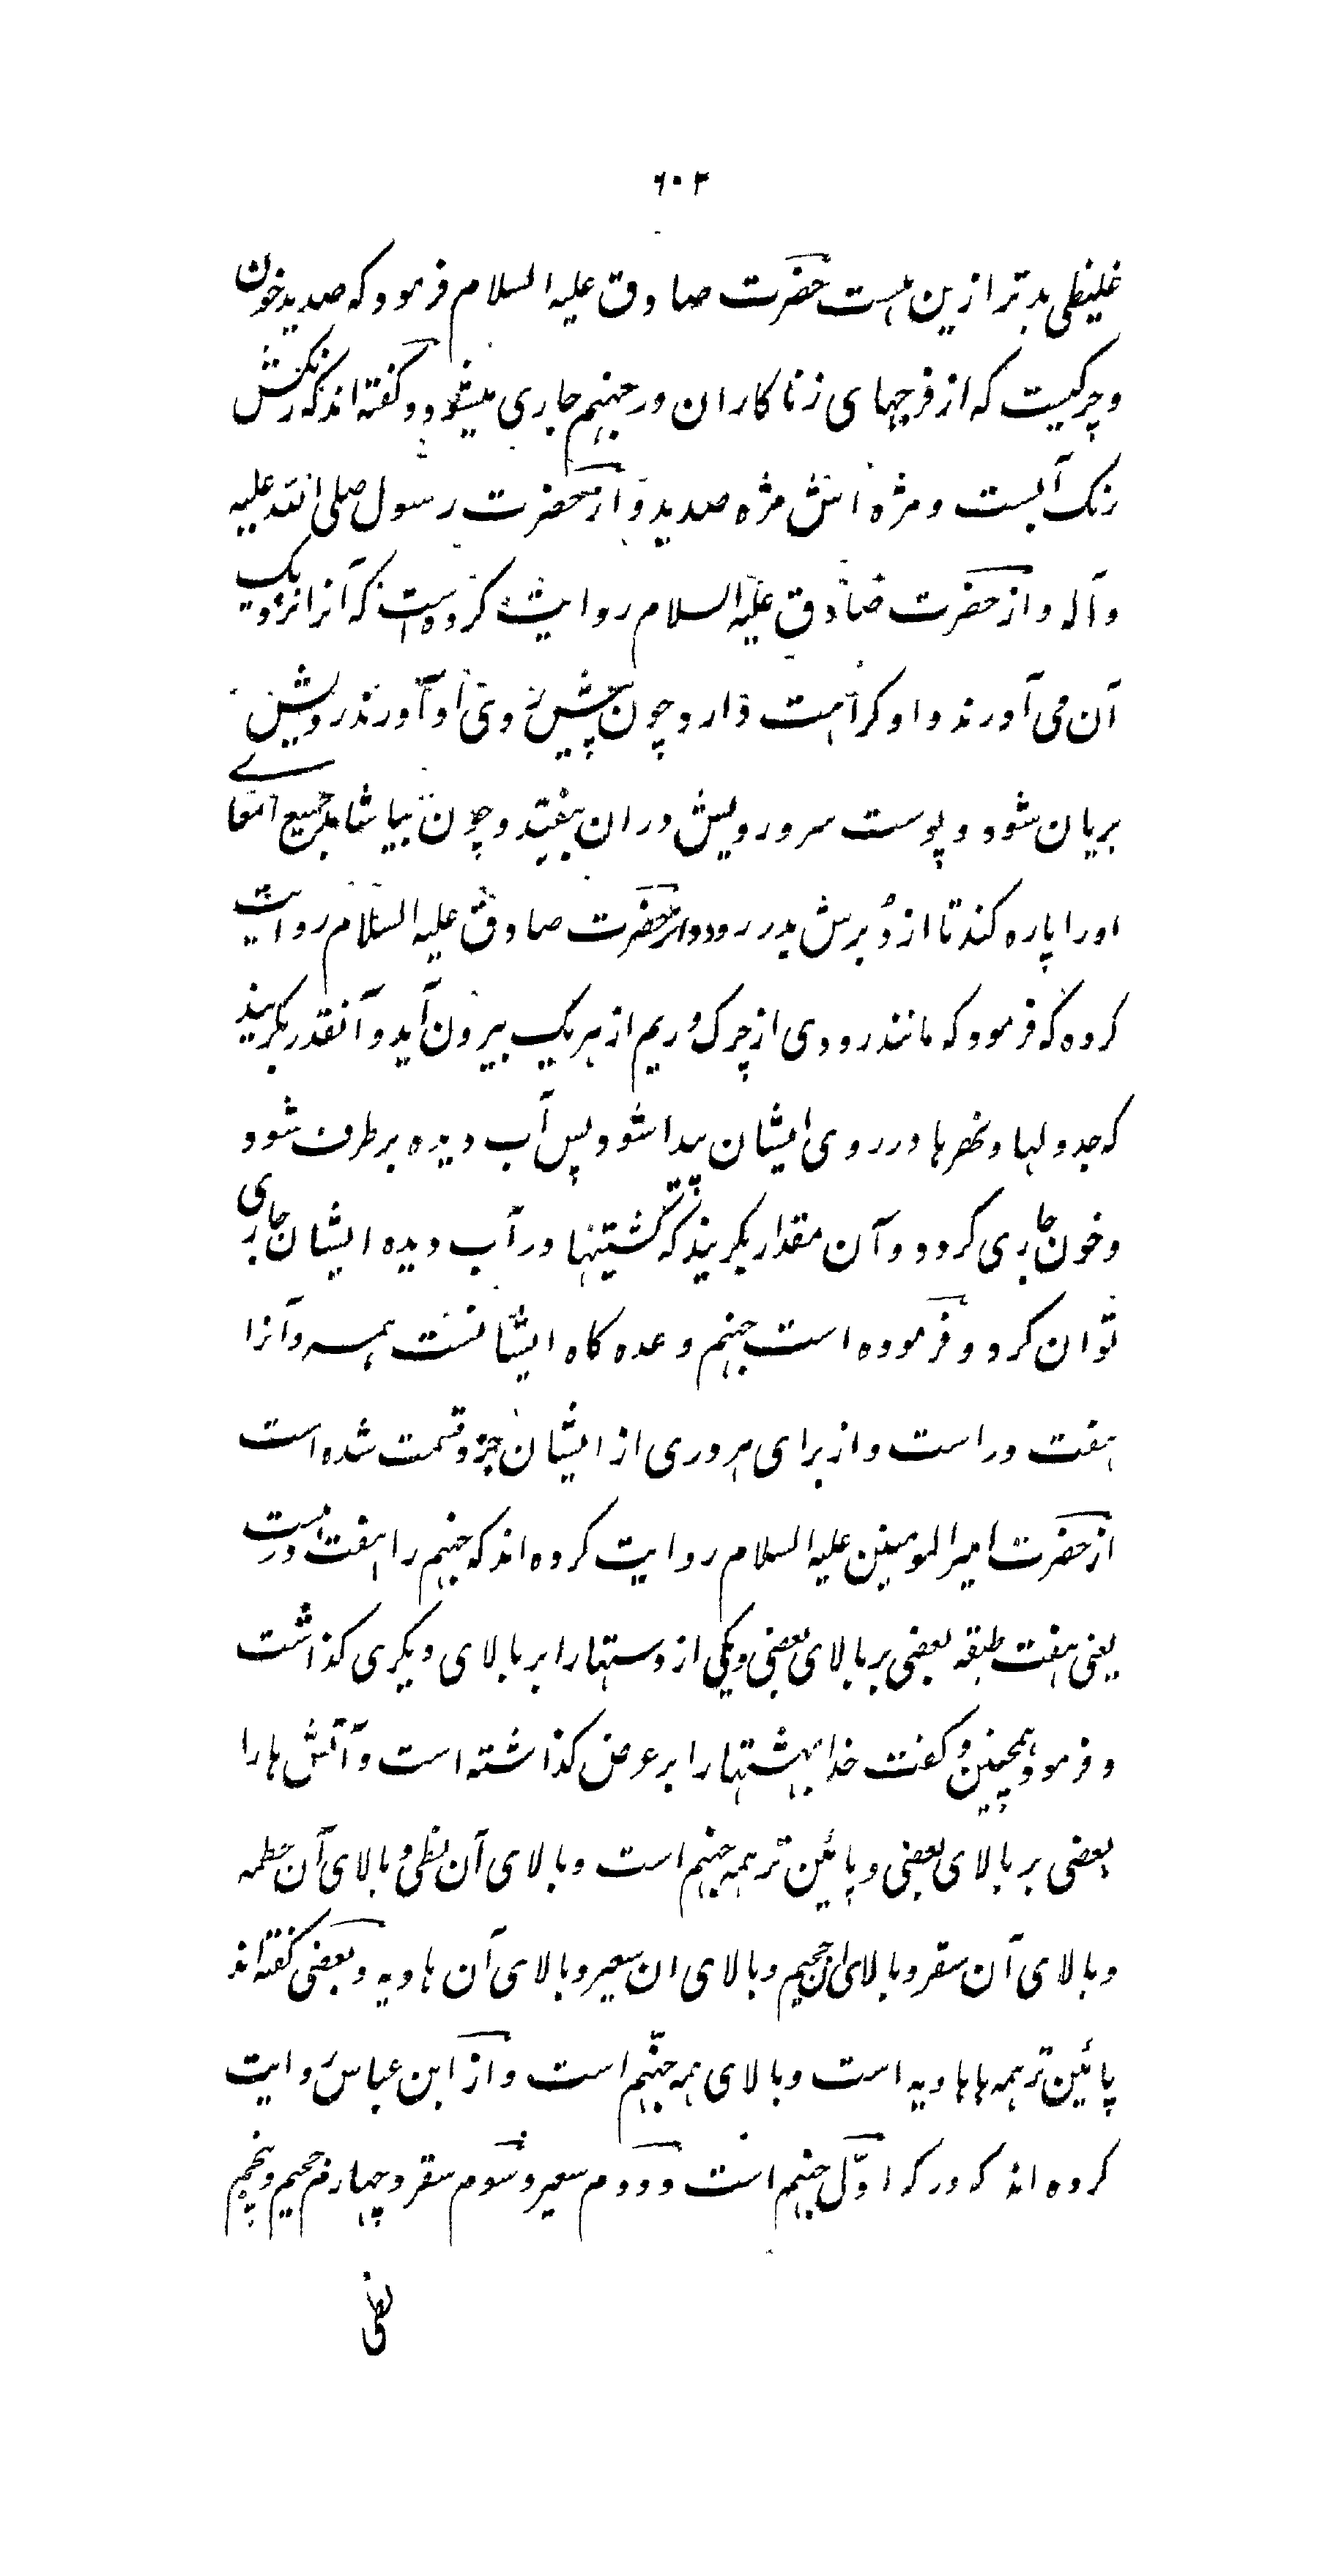 ۶۰۳
غلیظی بدتر ازین هست حضرت صادق علیه السلام فرمود که صدید خون
و چرکیست که از فرجهای زناکاران در جهنم جاری میشود و گفته اند که رنگش
رنگ آبست و مزه اش مزه صدید و از حضرت رسول صلی الله علیه
و آله و از حضرت صادق علیه السلام روایت کرده است که آنرا نزدیک
آن می آورند و او کراهت دارد و چون پیش روی او آورند رویش
بریان شود و پوست سر و رویش در ان بیفتد و چون بیاشامد جمیع امعای
او را پاره کند تا از دُبرش بدر رود و از حضرت صادق علیه السلام روایت
کرده که فرمود که مانند رودی از چرک و ریم از هر یک بیرون آید و آنقدر بگریند
که جدولها و نهرها در روی ایشان پیدا شود پس آب دیده برطرف شود
و خون جاری گردد و آن مقدار بگریند که کشتیها در آب دیده ایشان جاری
توان کرد و فرموده است جهنم وعده گاه ایشانست همه و آنرا
هفت در است و از برای هر دری از ایشان جزو قسمت شده است
از حضرت امیرالمومنین علیه السلام روایت کرده اند که جهنم را هفت در است
یعنی هفت طبقه بعضی بر بالای بعضی و یکی از دستها را بر بالای دیگری گذاشت
و فرمود همچنین و گفت خدا بهشتها را بر عرض گذاشته است و آتش ها را
بعضی بر بالای بعضی و پائین تر همه جهنم است و بالای آن لظی و بالای آن حطمه
و بالای آن سقر و بالای ان جحیم و بالای ان سعیر و بالای آن هاویه و بعضی گفته اند
پائین تر همه ها هاویه است و بالای همه جهنّم است و از ابن عباس روایت
کرده اند که درکه اوّل جهنم است و دوم سعیر و سوم سقر و چهارم جحیم و پنجم
لظی